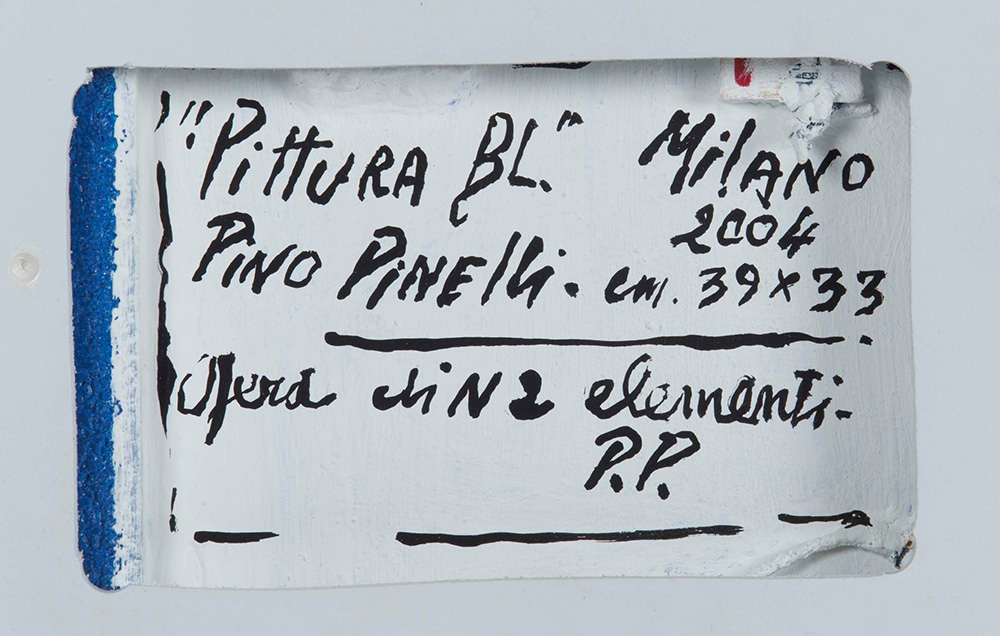 "Pittura BL." Milano
2004
Pino Pinelli. cm. 39x33
Opera di N 2 elementi.
P.P.